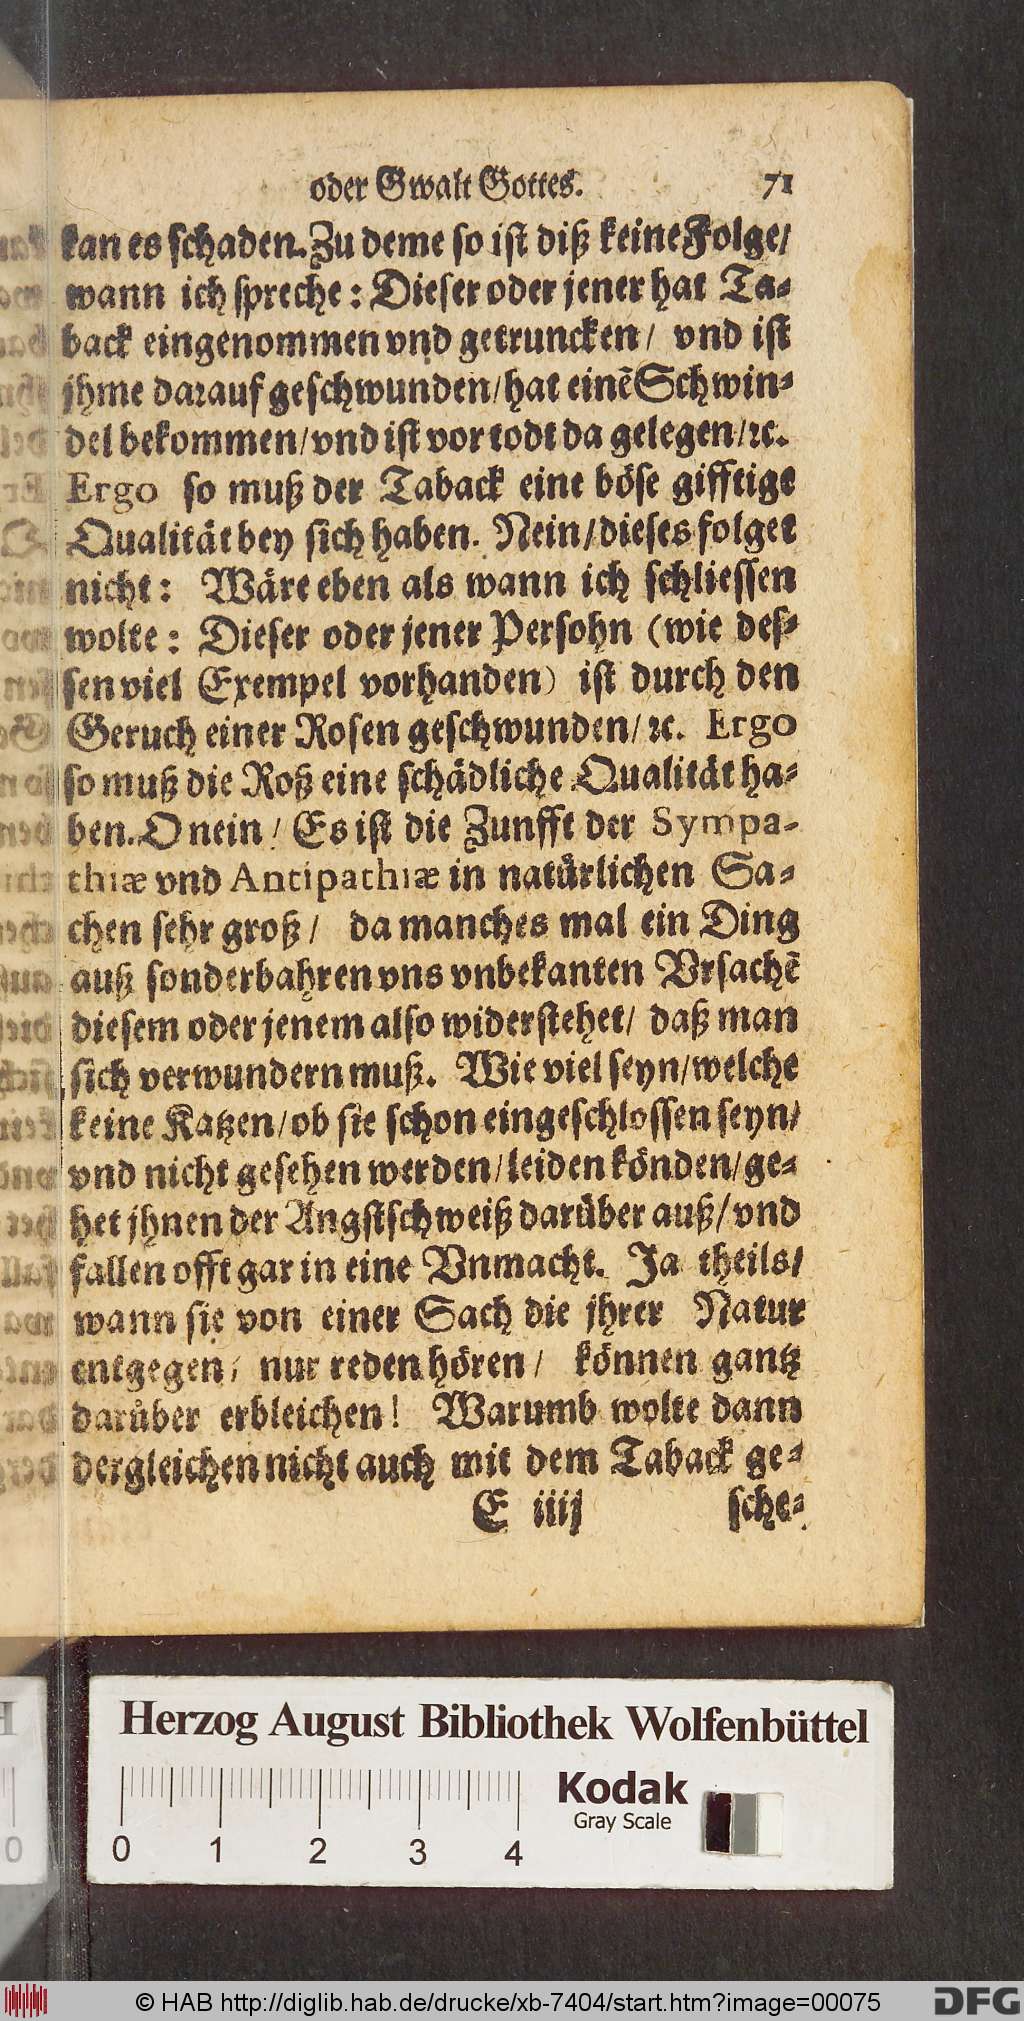 oder Gwalt Gottes. 71
kan es schaden. Zu deme so ist diß keine Folge/
wann ich spreche: Dieser oder jener hat Ta-
back eingenommen vnd getruncken/ vnd ist
jhme darauf geschwunden/ hat einē Schwin-
del bekommen/ vnd ist vor todt da gelegen/ ꝛc.
Ergo so muß der Taback eine böse gifftige
Qualität bey sich haben. Nein/ dieses folget
nicht: Wäre eben als wann ich schliessen
wolte: Dieser oder jener Persohn (wie des-
sen viel Exempel vorhanden) ist durch den
Geruch einer Rosen geschwunden/ ꝛc. Ergo
so muß die Roß eine schädliche Qualität ha-
ben. O nein! Es ist die Zunfft der Sympa-
thiæ vnd Antipathiæ in natürlichen Sa-
chen sehr groß/ da manches mal ein Ding
auß sonderbahren vns vnbekanten Vrsachē
diesem oder jenem also widerstehet/ daß man
sich verwundern muß. Wie viel seyn/ welche
keine Katzen/ ob sie schon eingeschlossen seyn/
vnd nicht gesehen werden/ leiden könden/ ge-
het jhnen der Angstschweiß darüber auß/ vnd
fallen offt gar in eine Vnmacht. Ja theils/
wann sie von einer Sach die jhrer Natur
entgegen/ nur reden hören/ können gantz
darüber erbleichen! Warumb wolte dann
dergleichen nicht auch mit dem Taback ge-
E iiij sche-
Herzog August Bibliothek Wolfenbüttel
Kodak
Gray Scale
0 1 2 3 4
© HAB http://diglib.hab.de/drucke/xb-7404/start.htm?image=00075
DFG